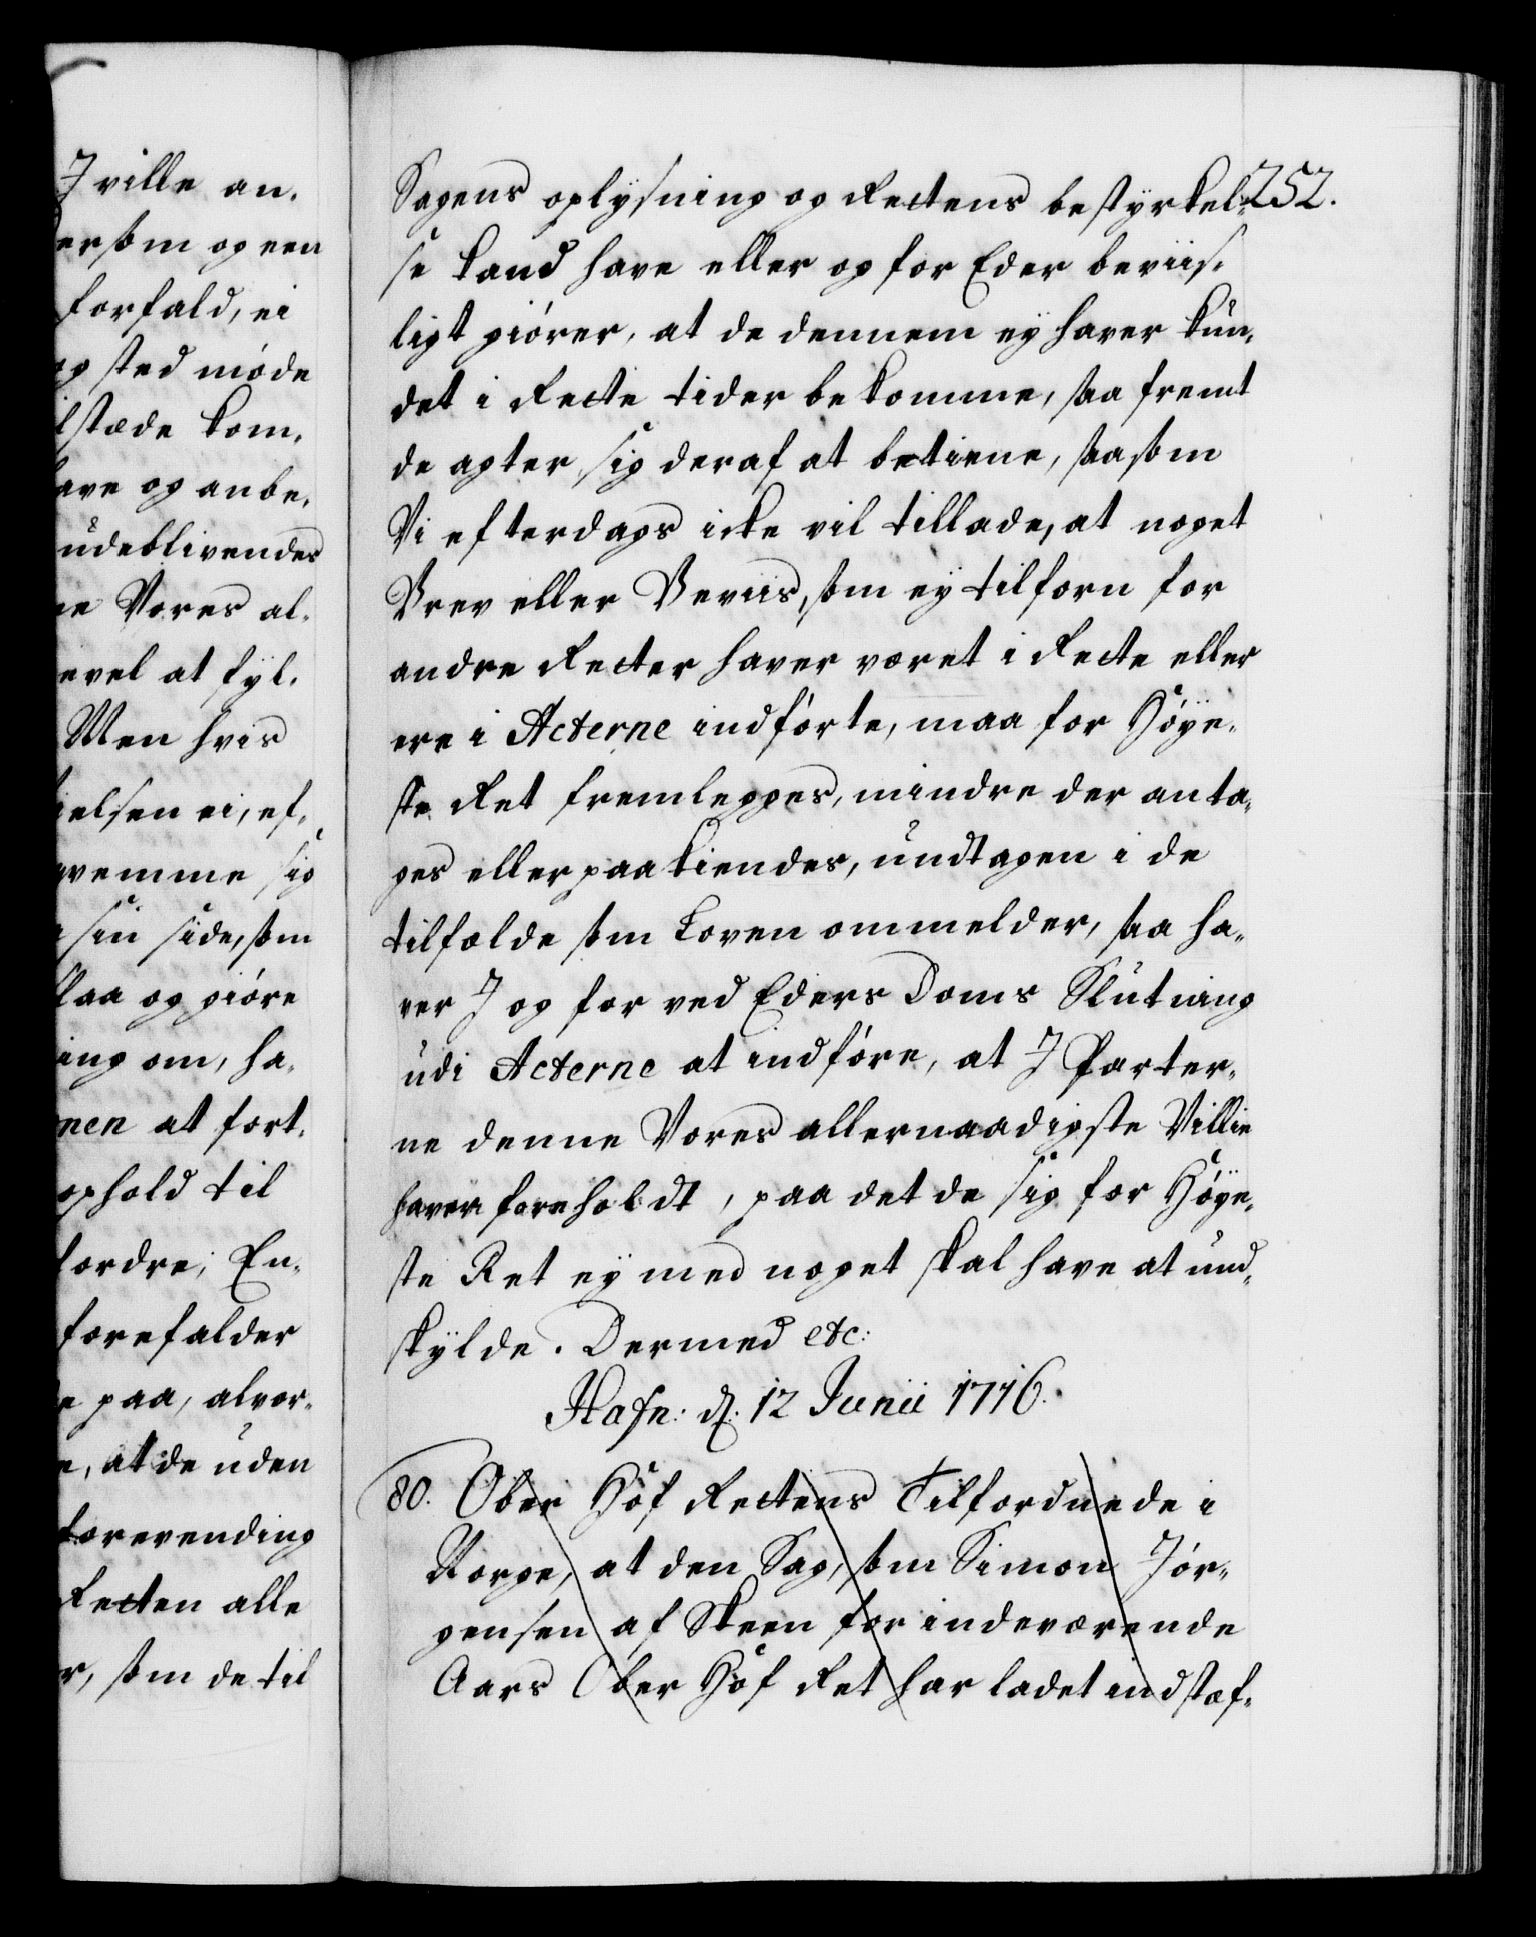 J ville an-
ersom og een
forfald, ei
og sted møde
lstæde kom-
have og anbe-
udeblivendes
ne Vores al-
evel at fyl-
Men hvis
ielsen ei, ef-
qvemme sig
sin side, som
slaa og giöre
ing om, ha-
nen at fort-
ophold til
fordre; En-
forefalder
e paa, alvor-
e, at de uden
forevending
Retten alle
r, som de til
252.
Sagens oplysning og Rettens bestyrkel-
se kand have eller og for Eder beviis-
ligt giörer, at de dennem ey haver kun-
det i Rette tider bekomme, saa fremt
de agter sig deraf at betiene, saasom
Vi efterdags icke vil tillade, at noget
Brev eller Beviis, som ey tilforn for
andre Retter haver været i Rette eller
ere i Acterne indförte, maa for Höye-
ste Ret fremlegges, mindre der anta-
ges eller paakiendes, undtagen i de
tilfælde som Loven ommelder, saa ha-
ver J og for ved Eders Doms Slutning
udi Acterne at indföre, at J Parter-
ne denne Vores allernaadigste Villie
haver foreholdt, paa det de sig for Höye-
ste Ret ey med noget skal have at und-
skylde. Dermed etc:
Hafn: d. 12 Junii 1716.
80. Ober Hof Rettens Tilfordnede i
Norge, at den Sag, som Simon Jör-
gensen af Skeen for indeværende
Aars Ober Hof Ret har ladet indstæf-